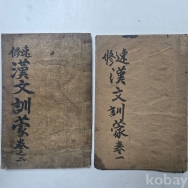 速修
漢文訓蒙 卷一
速修
漢文訓蒙 卷二
kobay